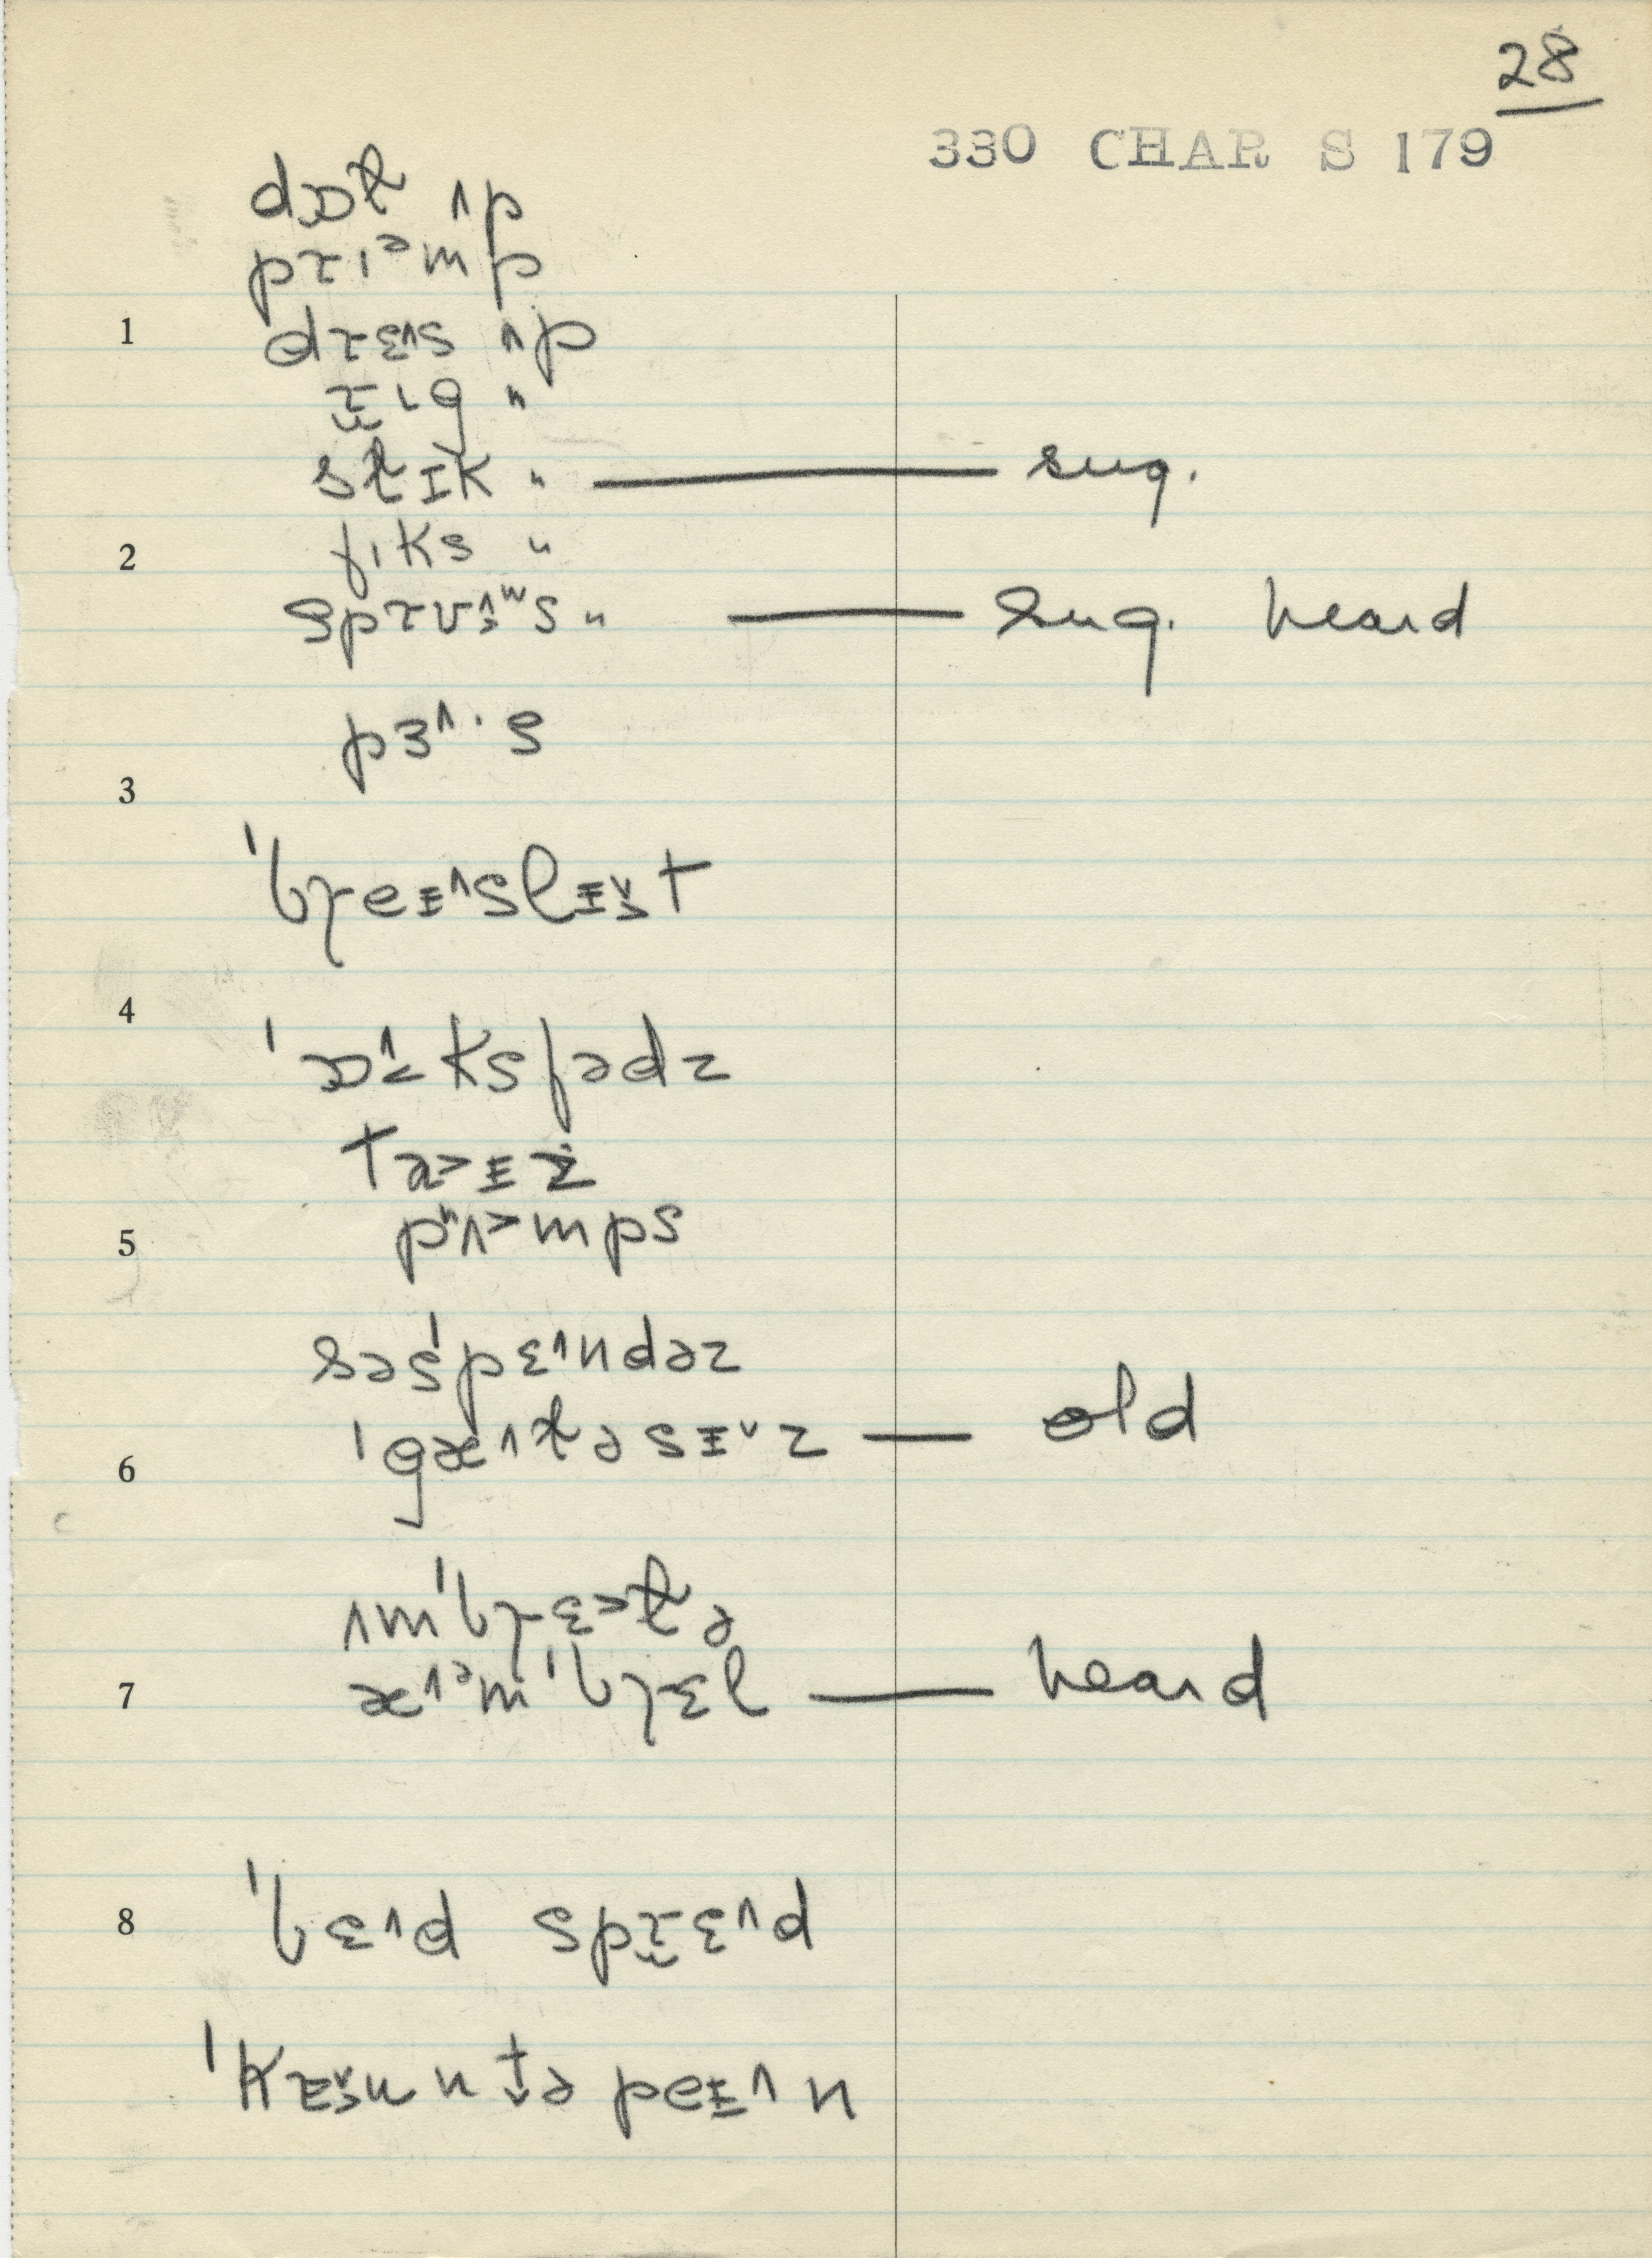 28
330 CHAR S 179
dɒt̬ ʌp
prɪᵊmp
1 drɛ^s ʌp
rɪg "
stɪk " — sug.
2 fɪks "
sprʊ "— sug. heard
pɜ^·s
3
'breɪ^slɪ˅t
4
'ɒ^ksfədz
taɪz
5 pʌ˃mps
səs'pɛ^ndəz
6 'gæ^t̬əsɪ˅z — old
ʌm'brɛ˃t̬ə
7 æ^ᵊm'brɛl — heard
8 'bɛ^d sprɛ^d
'kɪ˅unt̬əpeɪ^n